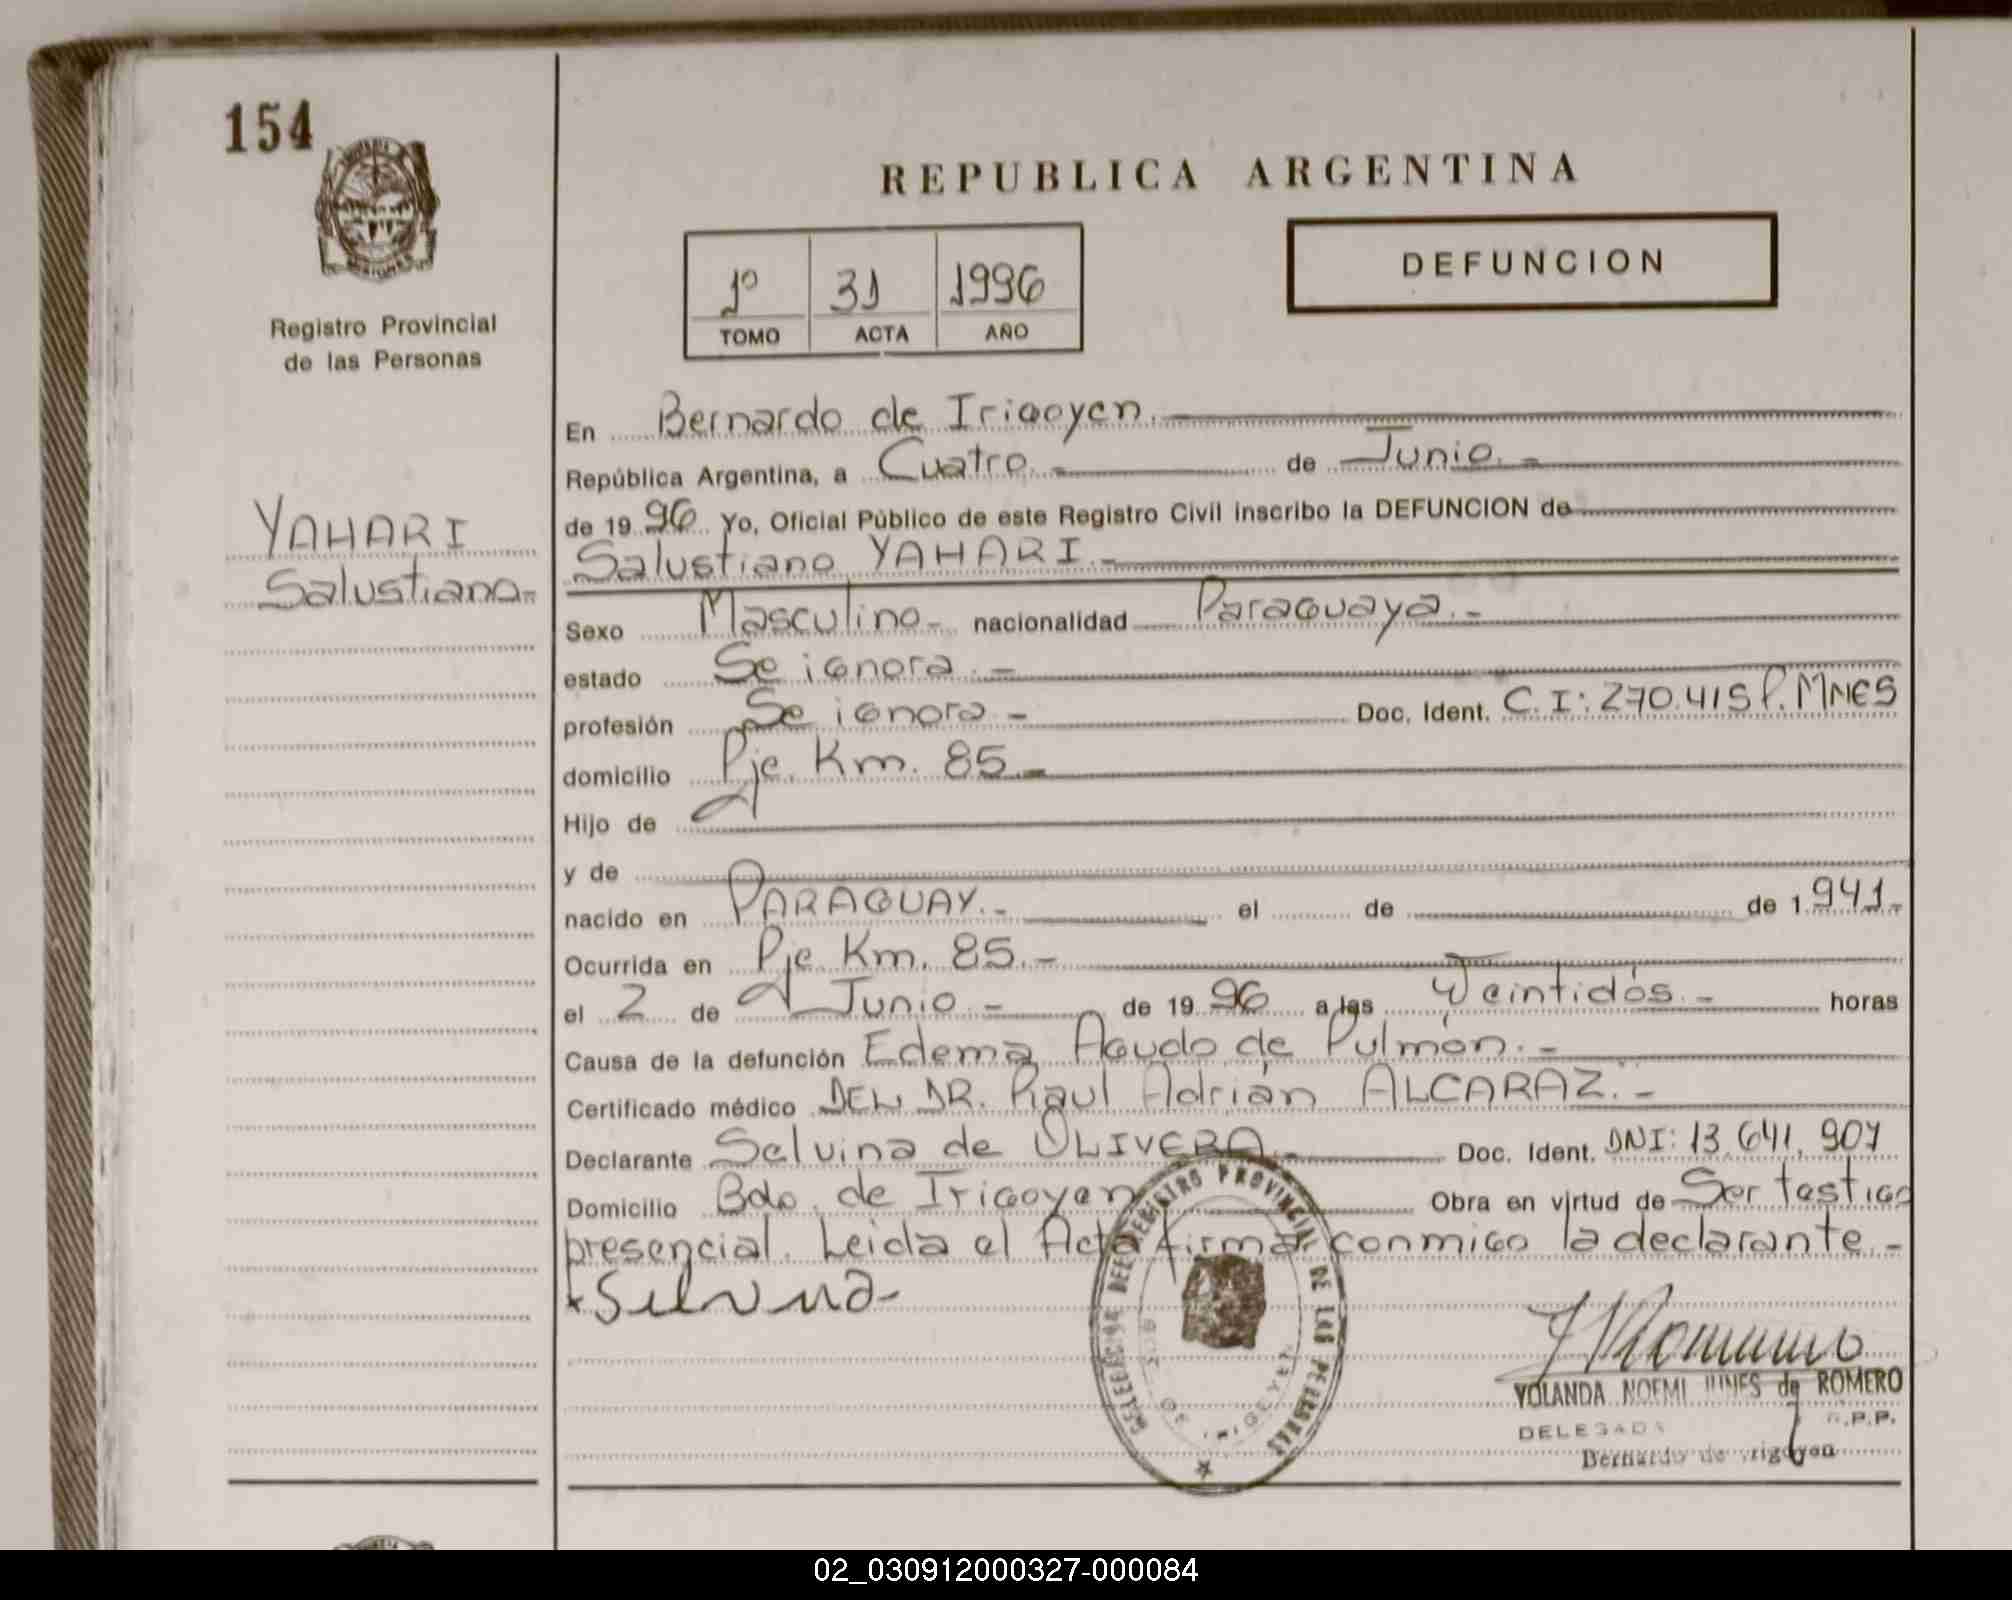 154
REPUBLICA ARGENTINA
DEFUNCION
1º 31 1996
TOMO ACTA AÑO
Registro Provincial
de las Personas
En Bernardo de Irigoyen.-
República Argentina, a Cuatro.- de Junio.-
de 1996 Yo, Oficial Público de este Registro Civil inscribo la DEFUNCION de
YAHARI
Salustiano-
Salustiano YAHARI.-
Sexo Masculino- nacionalidad Paraguaya.-
estado Se ignora.-
profesión Se ignora- Doc. Ident. C.I: 270.415 P. MNES
domicilio Pje. Km. 85.-
Hijo de
y de
nacido en PARAGUAY.- el de de 1.941.-
Ocurrida en Pje Km. 85.-
el 2 de Junio- de 1996 a las Veintidós.- horas
Causa de la defunción Edema Agudo de Pulmón.-
Certificado médico DEL DR. Raul Adrián ALCARAZ.-
Declarante Selvina de OLIVERA.- Doc. Ident. DNI: 13.641.907
Domicilio Bdo. de Irigoyen Obra en virtud de Ser testigo
presencial. Leida el Acta firma conmigo la declarante.-
Selvina-
DELEGACION DEL REGISTRO PROVINCIAL DE LAS PERSONAS
DE IRIGOYEN
YOLANDA NOEMI de ROMERO
DELEGADA R.P.P.
Bernardo de Irigoyen
02_030912000327-000084